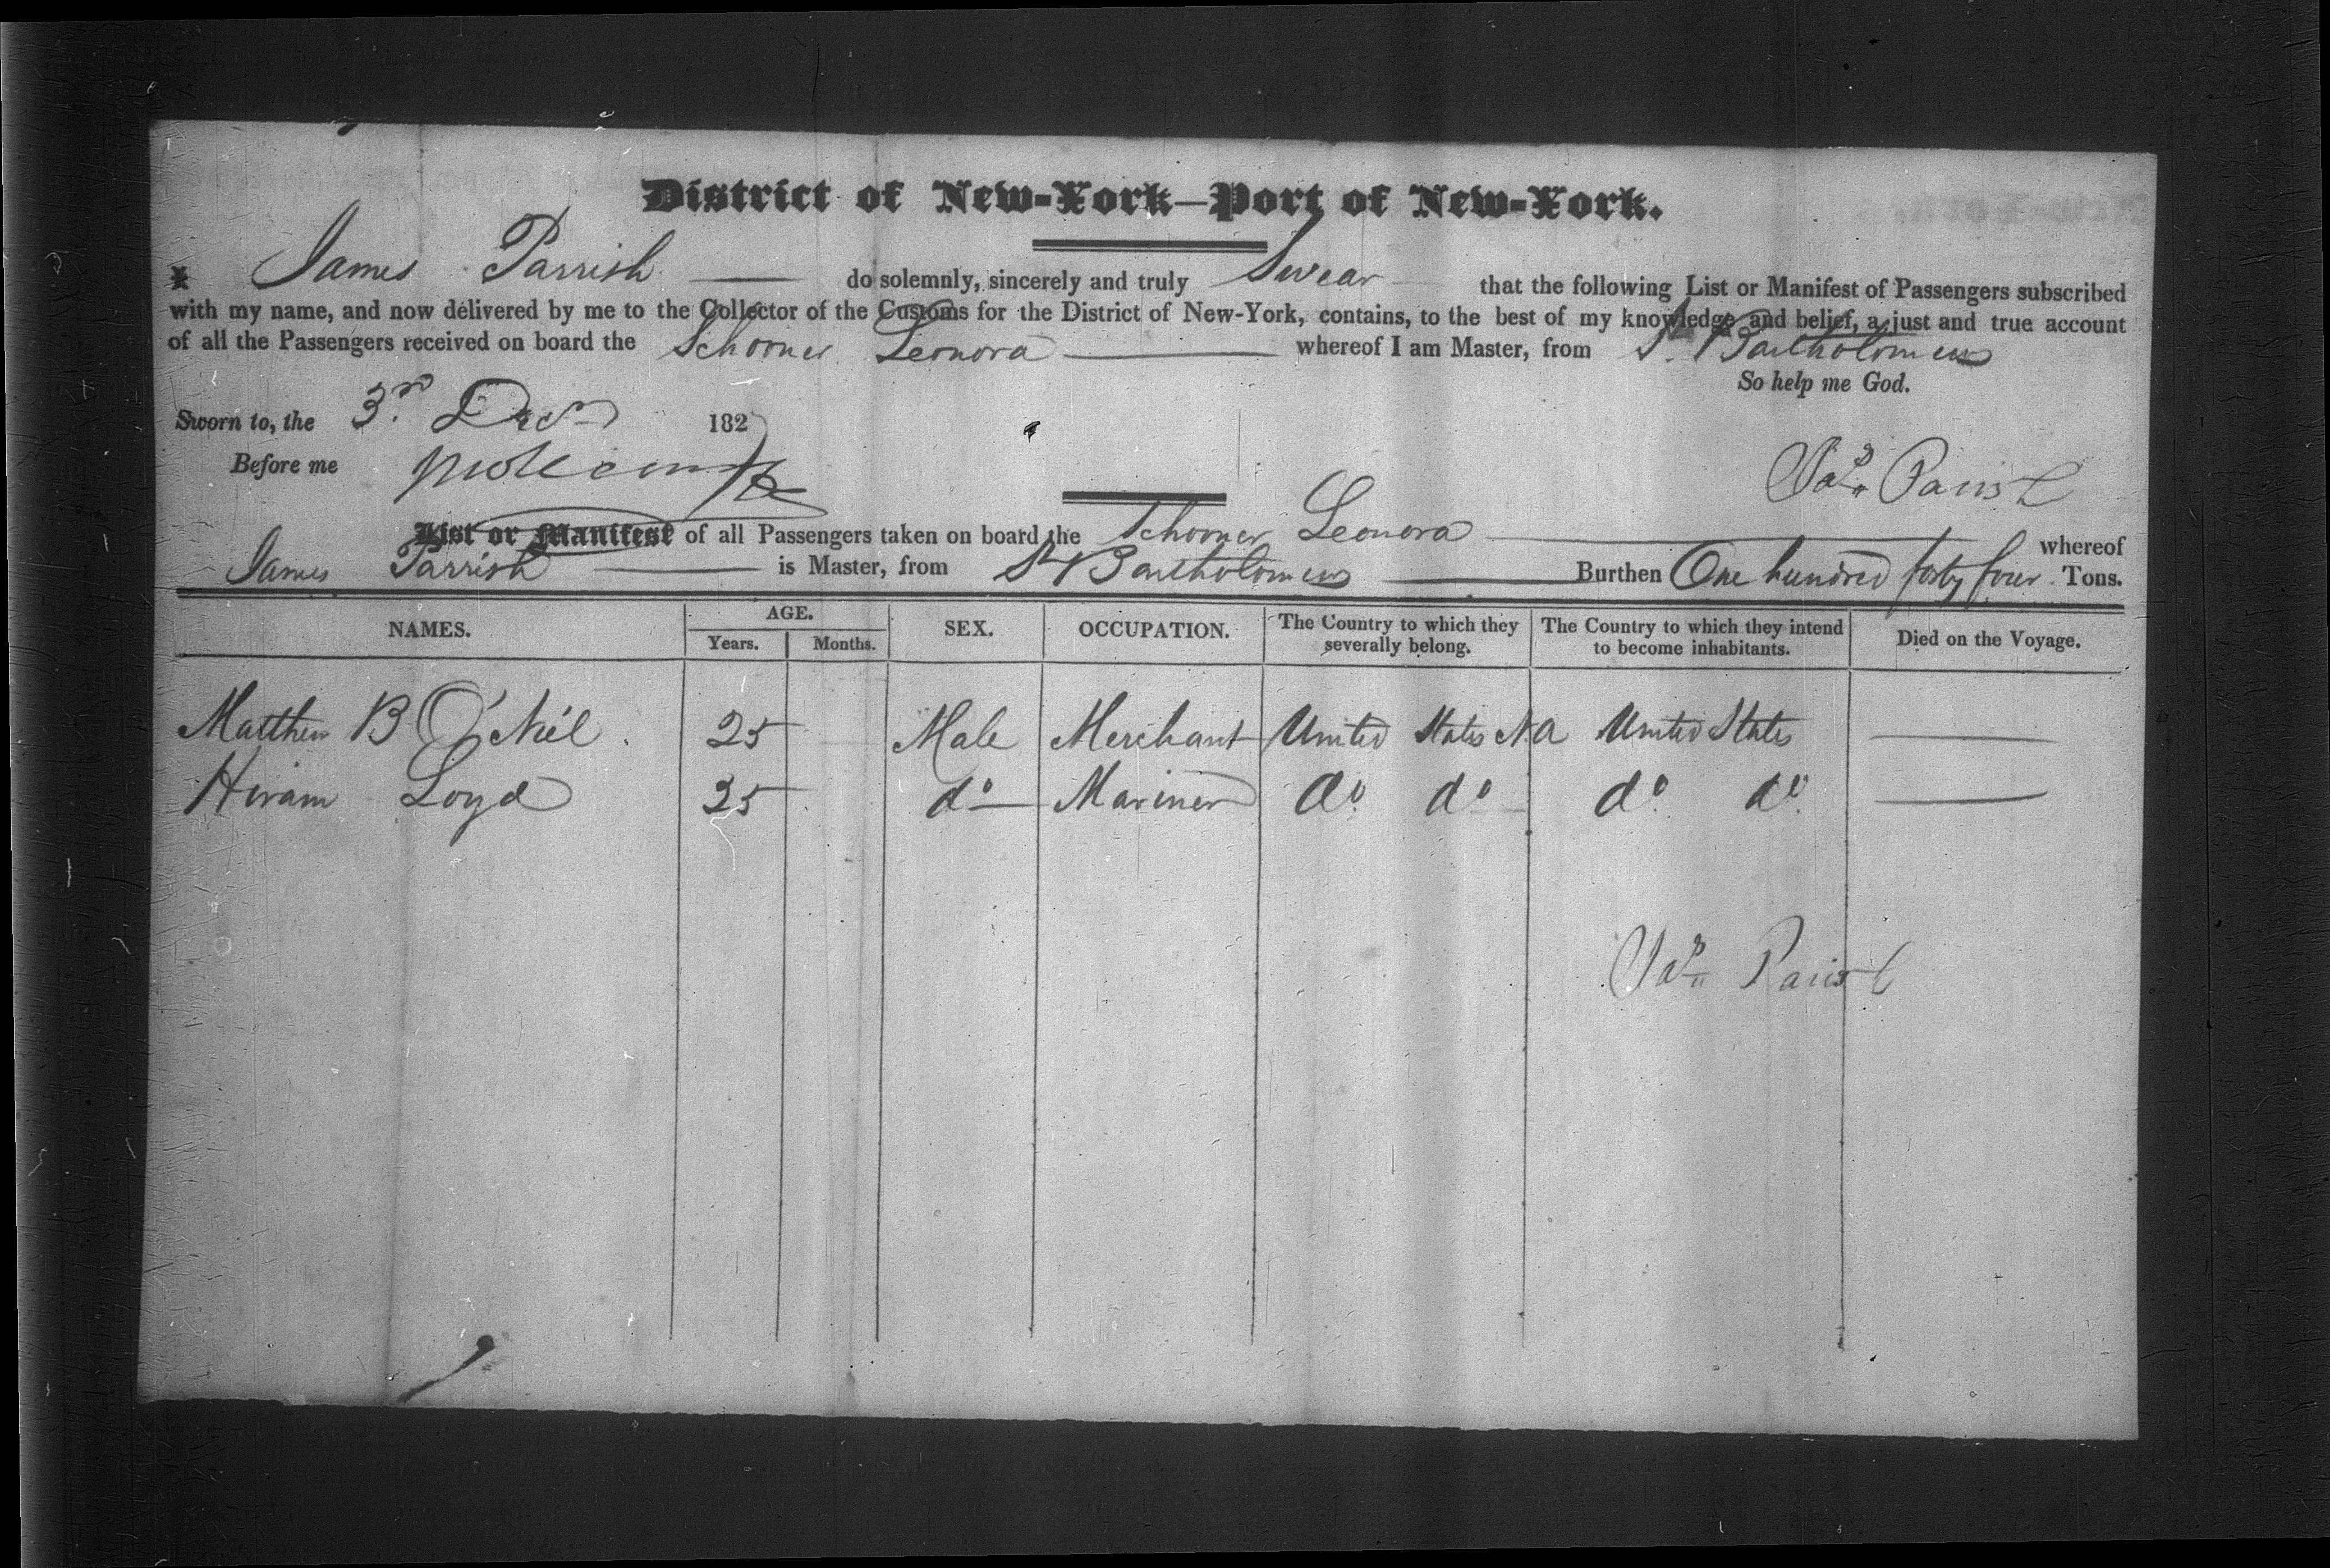 District of New-York—Port of New-York.
I James Parrish do solemnly, sincerely and truly Swear that the following List or Manifest of Passengers subscribed
with my name, and now delivered by me to the Collector of the Customs for the District of New-York, contains, to the best of my knowledge and belief, a just and true account
of all the Passengers received on board the Schooner Leonora whereof I am Master, from St. Bartholomews
So help me God.
Sworn to, the 3rd Decr 1827
Before me
Jas Parish
List or Manifest of all Passengers taken on board the Schooner Leonora whereof
James Parrish is Master, from St Bartholomews Burthen One hundred forty four Tons.
NAMES. AGE. Years. Months. SEX. OCCUPATION. The Country to which they severally belong. The Country to which they intend to become inhabitants. Died on the Voyage.
Matthew B O'Niel 25 Male Merchant United States N.A United States
Hiram Loyd 25 do Mariner do do do do
Jas Parish